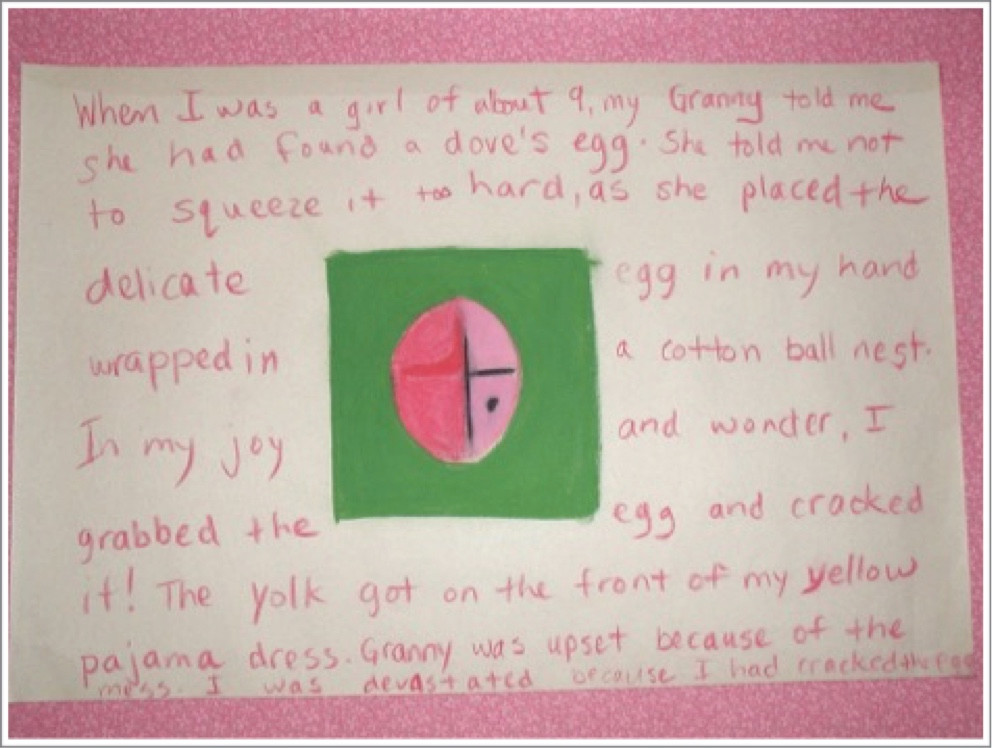 When I was a girl of about 9, my Granny told me
she had found a dove's egg. She told me not
to squeeze it too hard, as she placed the
delicate egg in my hand
wrapped in a cotton ball nest.
In my joy and wonder, I
grabbed the egg and cracked
it! The yolk got on the front of my yellow
pajama dress. Granny was upset because of the
mess. I was devastated because I had cracked the egg